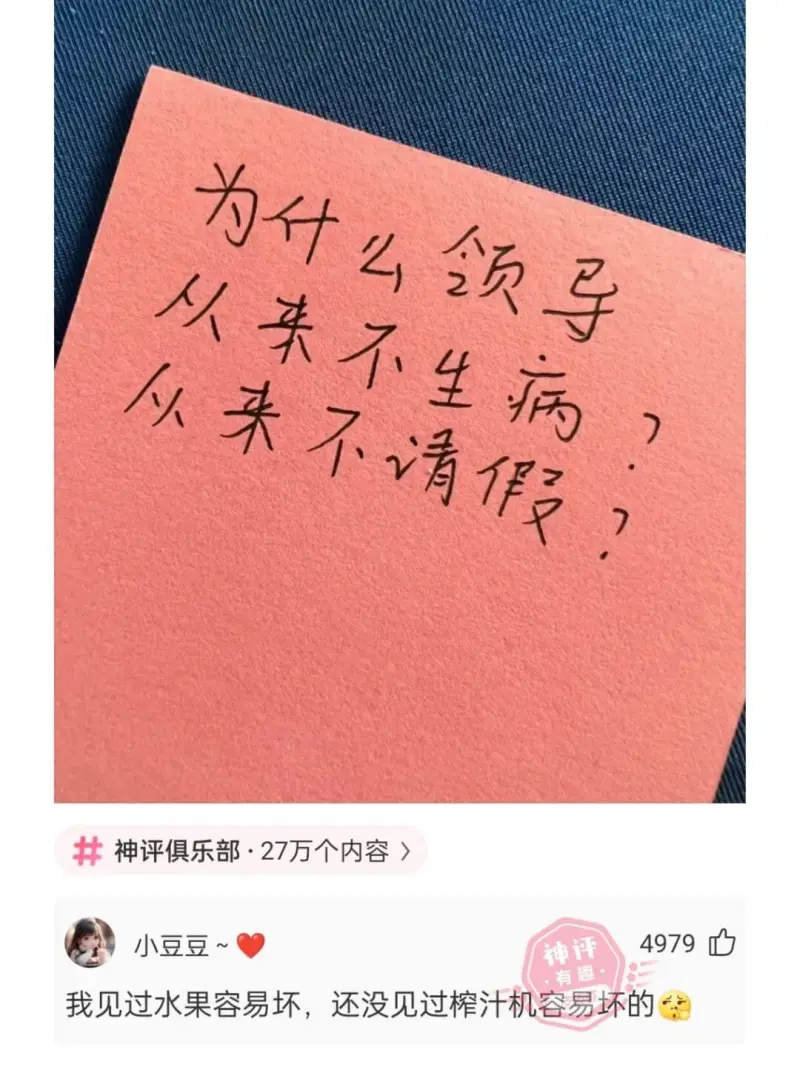 为什么领导
从来不生病?
从来不请假?
神评俱乐部·27万个内容 >
小豆豆~❤️
神评
有趣
4979
我见过水果容易坏，还没见过榨汁机容易坏的🫣